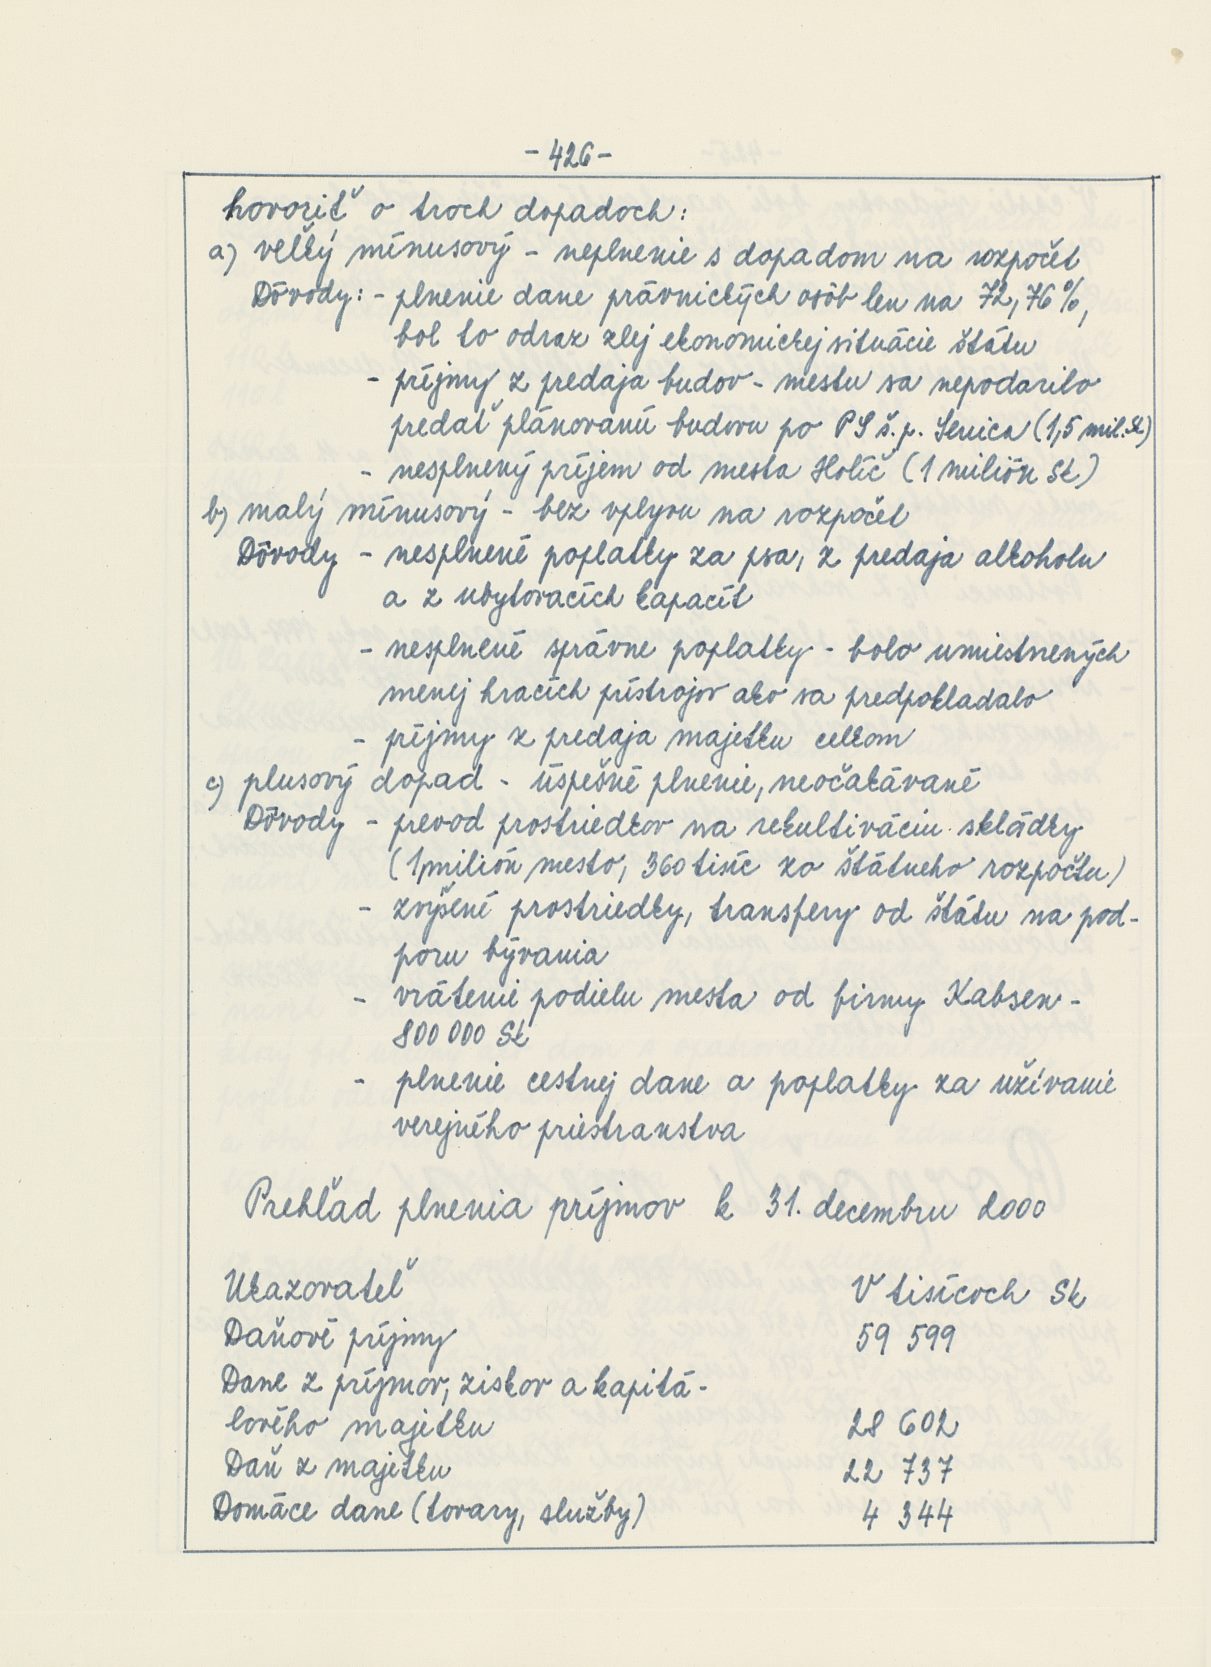 - 426 -
hovoriť o troch dopadoch:
a) veľký mínusový - neplnenie s dopadom na rozpočet
Dôvody: - plnenie dane právnických osôb len na 72,76%,
bol to odraz zlej ekonomickej situácie štátu
- príjmy z predaja budov - mestu sa nepodarilo
predať plánovanú budovu po PS š.p. Senica (1,5 mil. Sk)
- nesplnený príjem od mesta Holíč (1 milión Sk)
b) malý mínusový - bez vplyvu na rozpočet
Dôvody - nesplnené poplatky za psa, z predaja alkoholu
a z ubytovacích kapacít
- nesplnené správne poplatky - bolo umiestnených
menej hracích prístrojov ako sa predpokladalo
- príjmy z predaja majetku celkom
c) plusový dopad - úspešné plnenie, neočakávané
Dôvody - prevod prostriedkov na rekultiváciu skládky
(1 milión mesto, 360 tisíc zo štátneho rozpočtu)
- zvýšené prostriedky, transfery od štátu na pod-
poru bývania
- vrátenie podielu mesta od firmy Kabsen -
800 000 Sk
- plnenie cestnej dane a poplatky za užívanie
verejného priestranstva
Prehľad plnenia príjmov k 31. decembru 2000
Ukazovateľ V tisícoch Sk
Daňové príjmy 59 599
Dane z príjmov, ziskov a kapitá-
lového majetku 28 602
Daň z majetku 22 737
Domáce dane (tovary, služby) 4 344